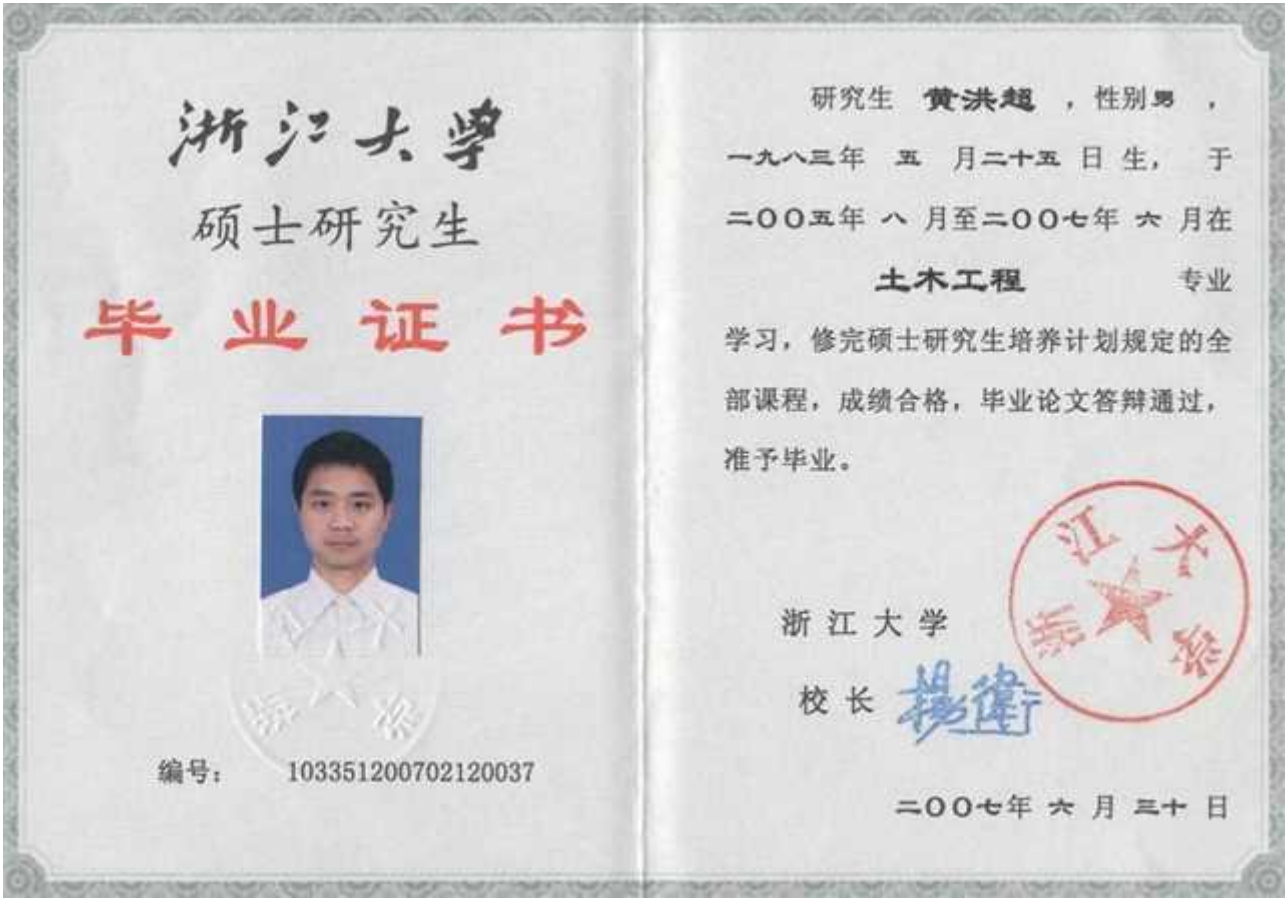 浙江大学
硕士研究生
毕业证书
编号： 103351200702120037
研究生 黄洪超 ，性别男 ，
一九八三年 五 月二十五 日 生， 于
二〇〇五年 八 月至二〇〇七年 六 月在
土木工程 专业
学习，修完硕士研究生培养计划规定的全
部课程，成绩合格，毕业论文答辩通过，
准予毕业。
浙江大学
浙 江 大 学
校 长 杨卫
二〇〇七年 六 月 三十 日